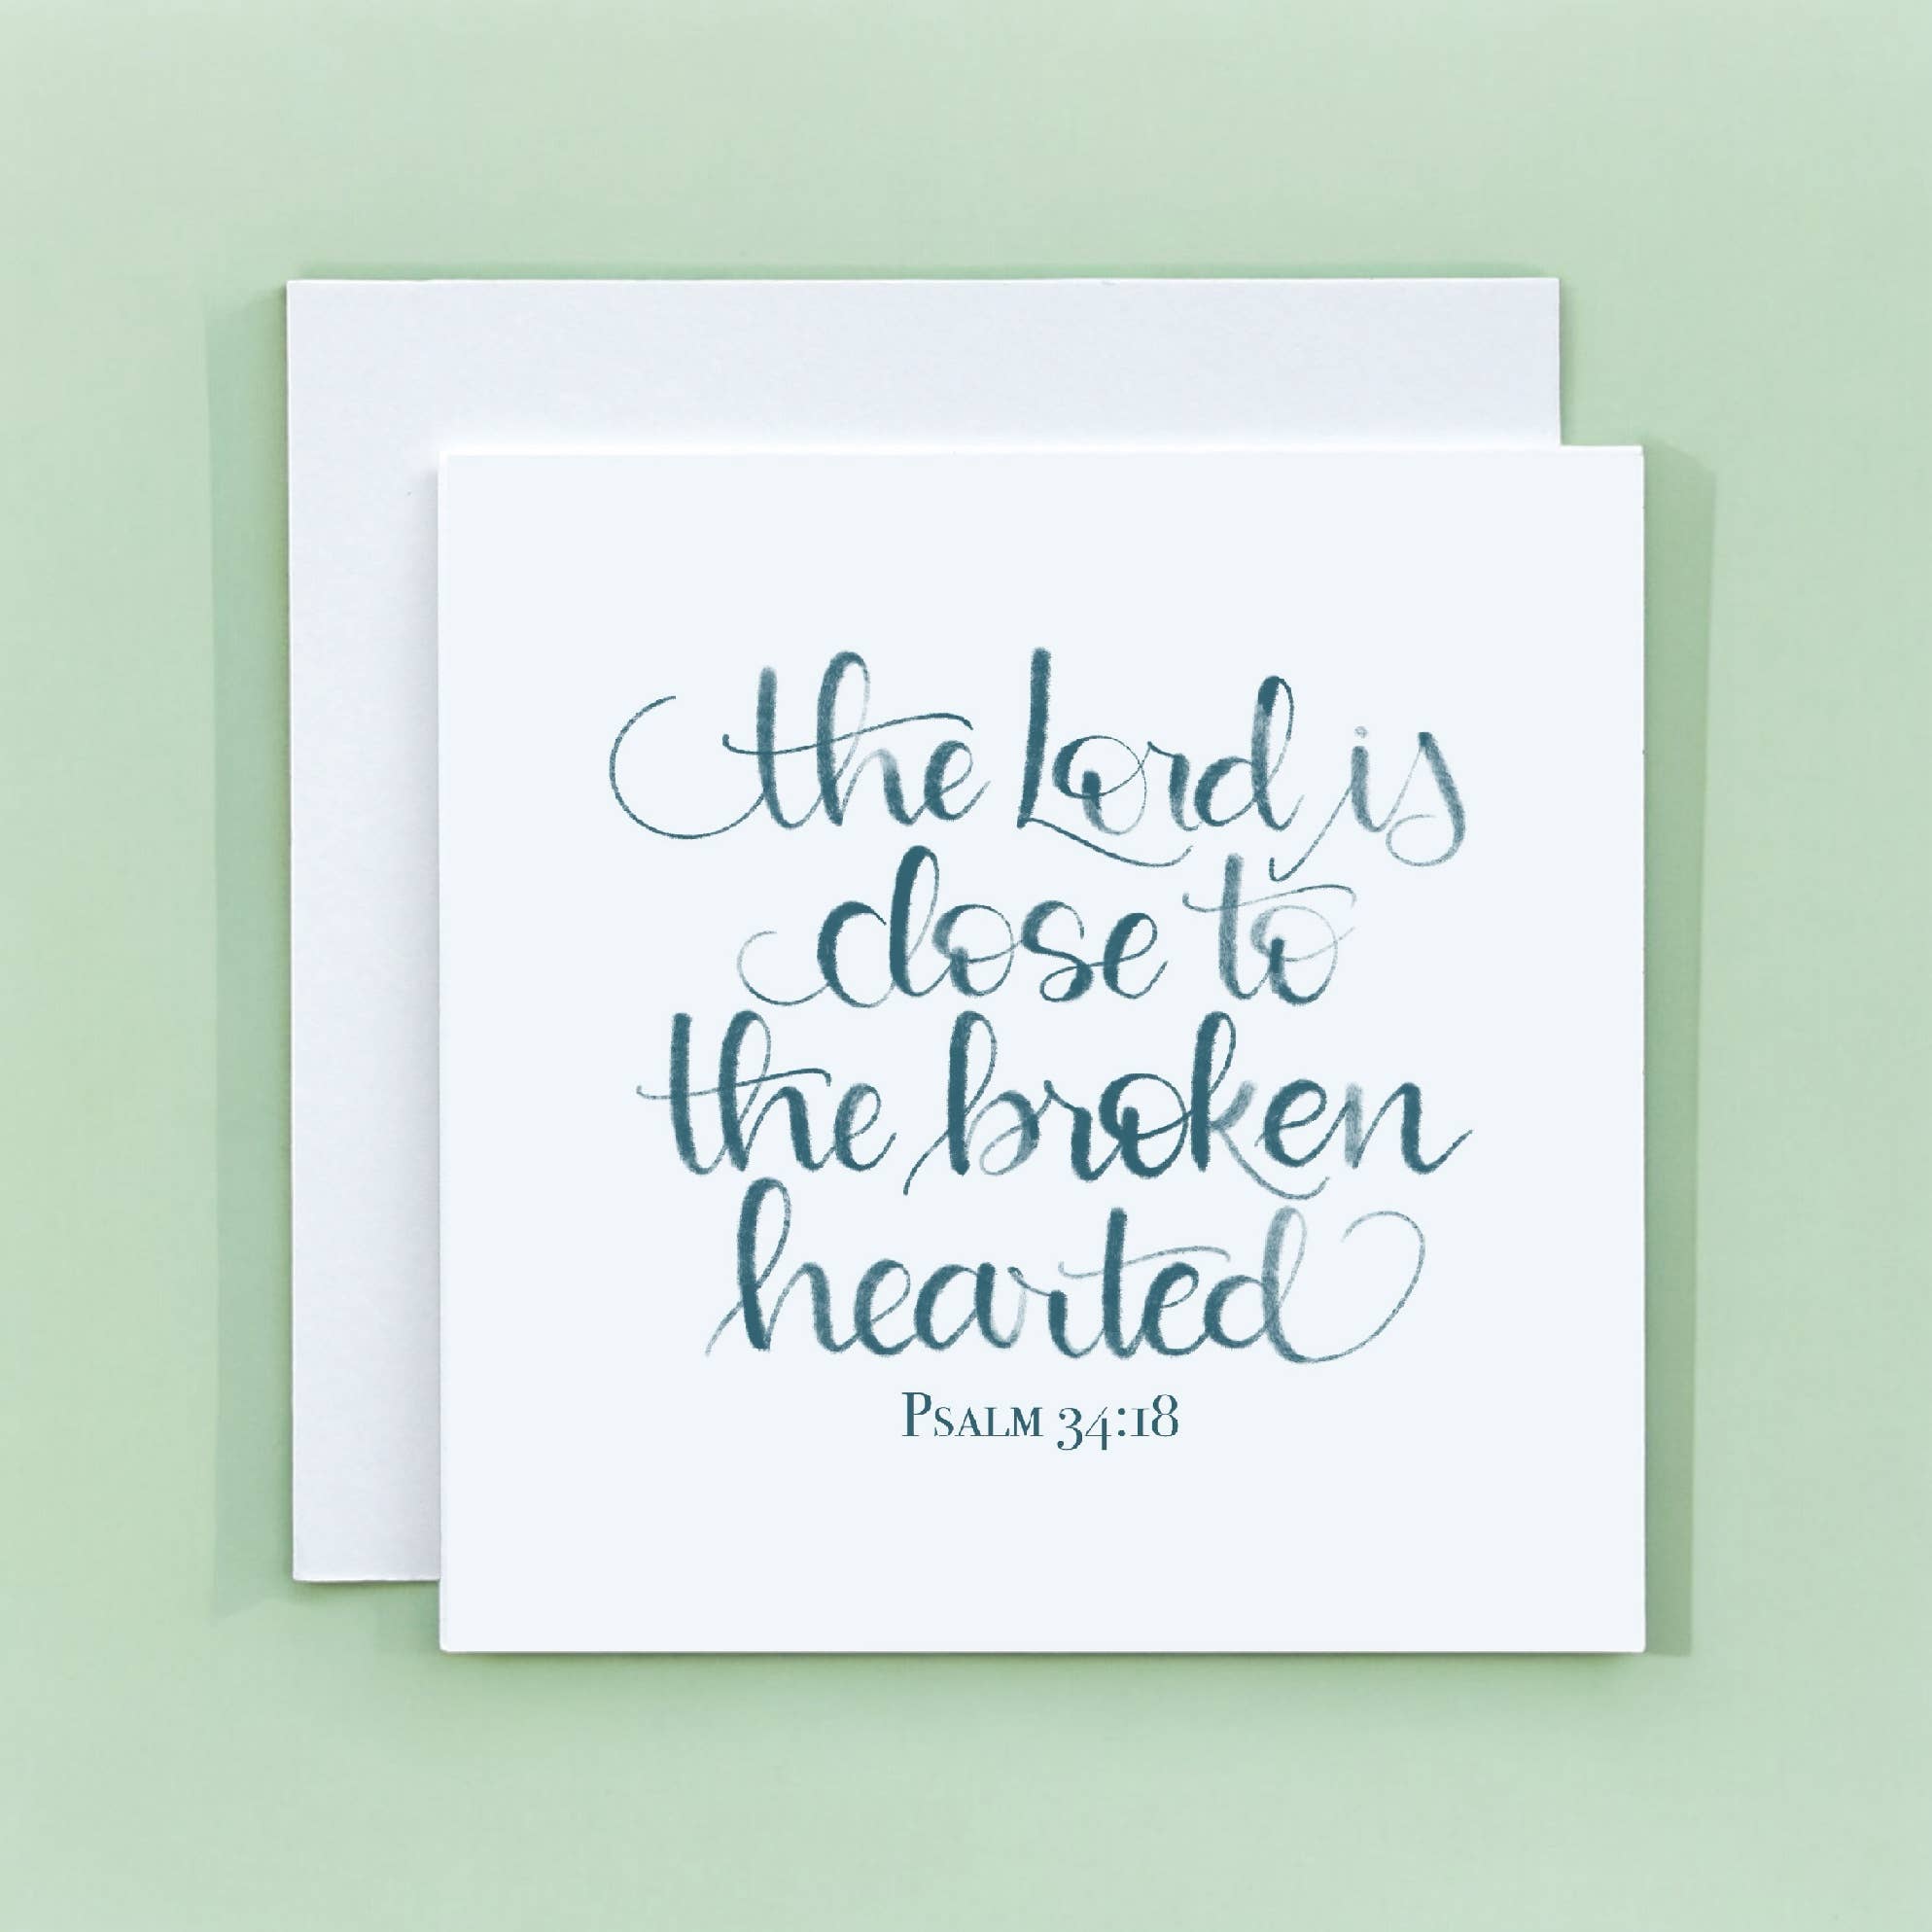 the Lord is
close to
the broken
hearted
Psalm 34:18